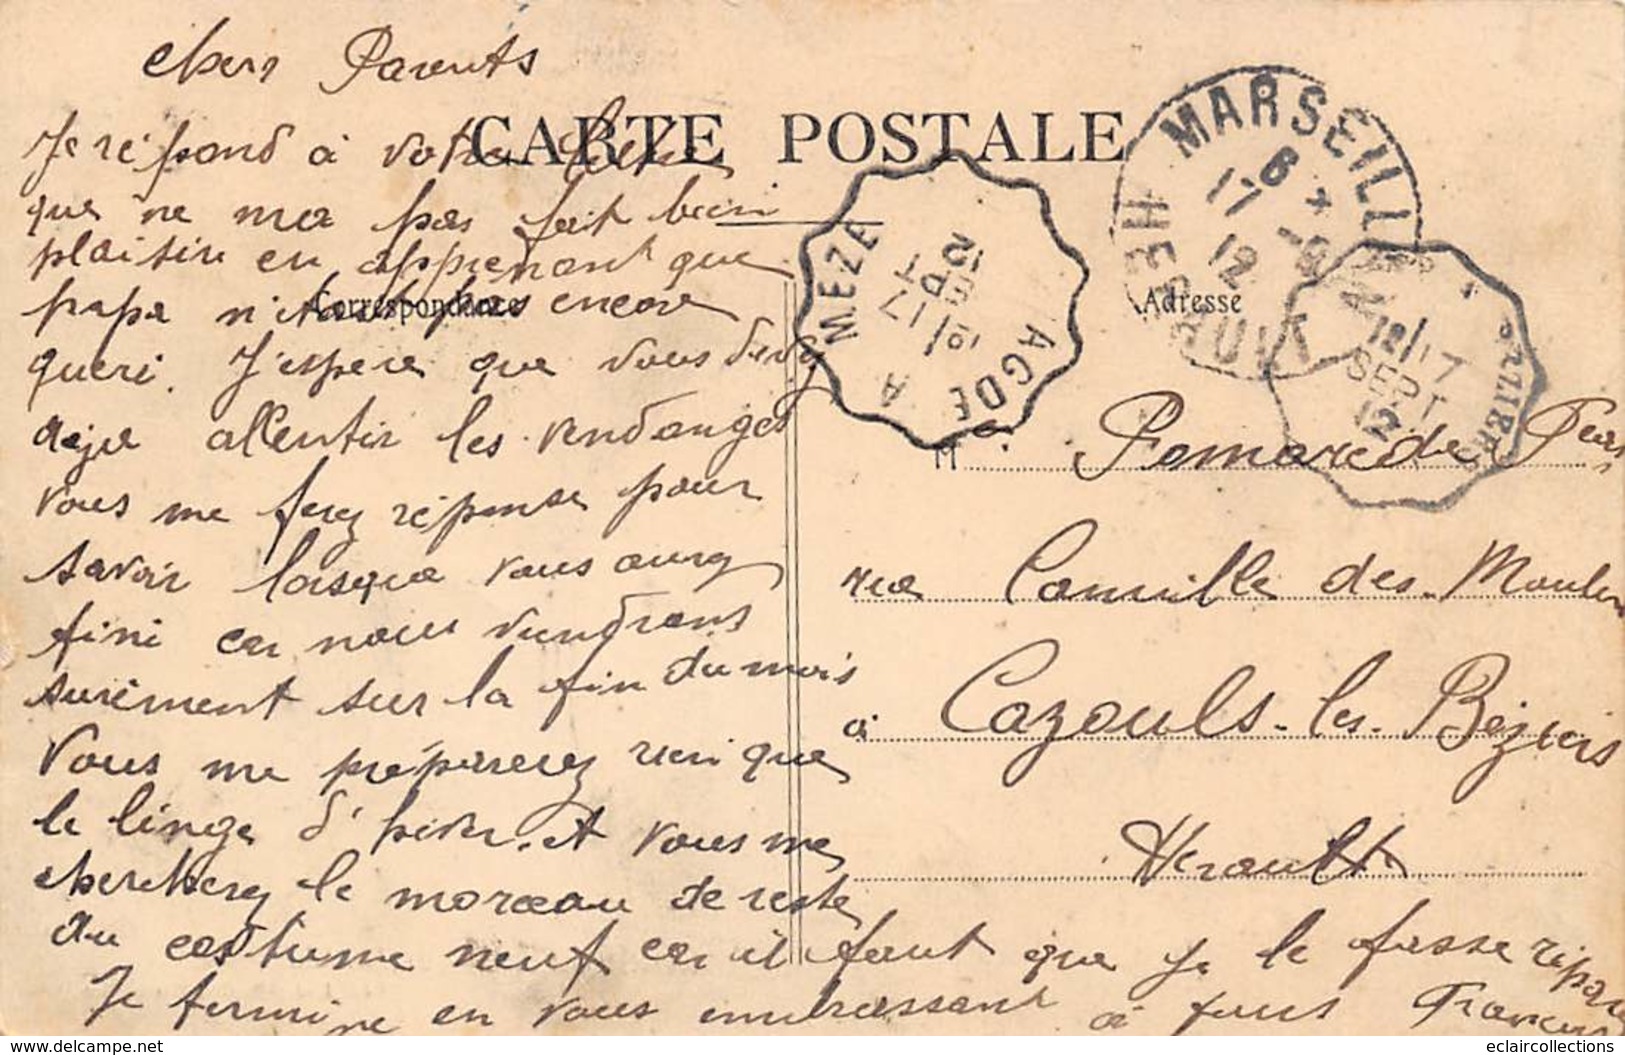 chers Parents
CARTE POSTALE
Je répond à votre lettre
que ne ma pas fait bien
plaisire en apprenant que
papa n'étais pas encore
Correspondance
queri. J'espere que vous devez
deja alentir les vendanges
vous me ferez réponse pour
savoir lasque vous aurez
fini car nous viendrons
surement sur la fin du mois
Vous me préparerez rien que
le linge d'hiver. et vous me
chercherez le morceau de reste
du costume neuf car il faut que je le fasse réparer
Je termine en vous embrassant à tous Francois
MARSEILLAN
6
17 -9
12
HERAULT
MEZE A AGDE
17 / 9
SEPT
12
17
SEPT
12
Adresse
M. Pomarede
rue Camille des Moulin
à Cazouls-les-Béziers
Hérault
eclaircollections
www.delcampe.net